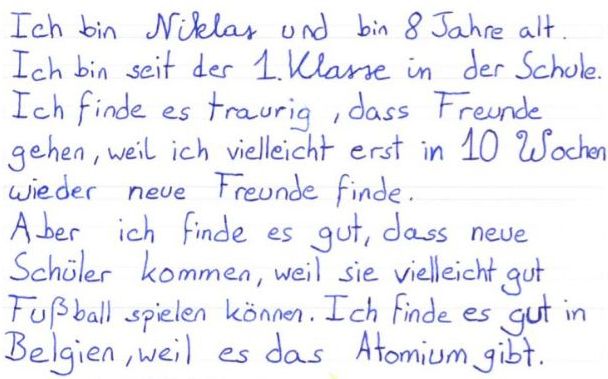 Ich bin Niklas und bin 8 Jahre alt.
Ich bin seit der 1. Klasse in der Schule.
Ich finde es traurig, dass Freunde
gehen, weil ich vielleicht erst in 10 Wochen
wieder neue Freunde finde.
Aber ich finde es gut, dass neue
Schüler kommen, weil sie vielleicht gut
Fußball spielen können. Ich finde es gut in
Belgien, weil es das Atomium gibt.